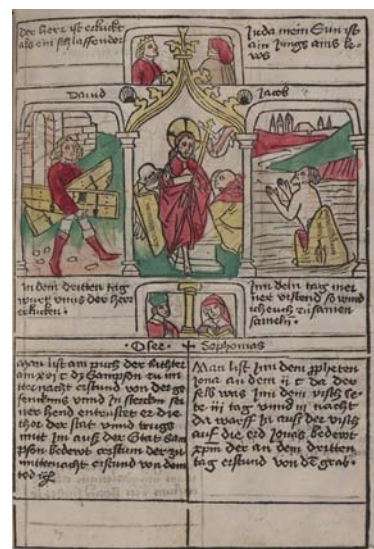 der herr ist erkuckt
als ein schlaffender
Juda mein Sun ist
ain Jungs ains le-
wos
Dauid
Jacob
In dem dritten tag
wurt vnns der herr
erkucken.
Inn dem tag mei
ner vrstend so wurd
ich euch zu samen
sameln.
Osee. + Sophonias
Man list am puch der Richter
am xvj c dz Sampson zu mi
ternacht erstund von der ge
fencknus vnnd In
ner hend entrustet er die
thor der stat vnnd trugs
mit Im auß der Stat Sam
pson bedewt cristum der zu
mitternacht erstund von dem
tod
Man list Inn dem ppheten
Jona an dem ij c da der
selb was Inn dem visch le-
be iii tag vnnd iii nacht
da warff In auß der visch
auf die erd Jonas bedewt
xpm der an dem dritten
tag erstund von dē grab.